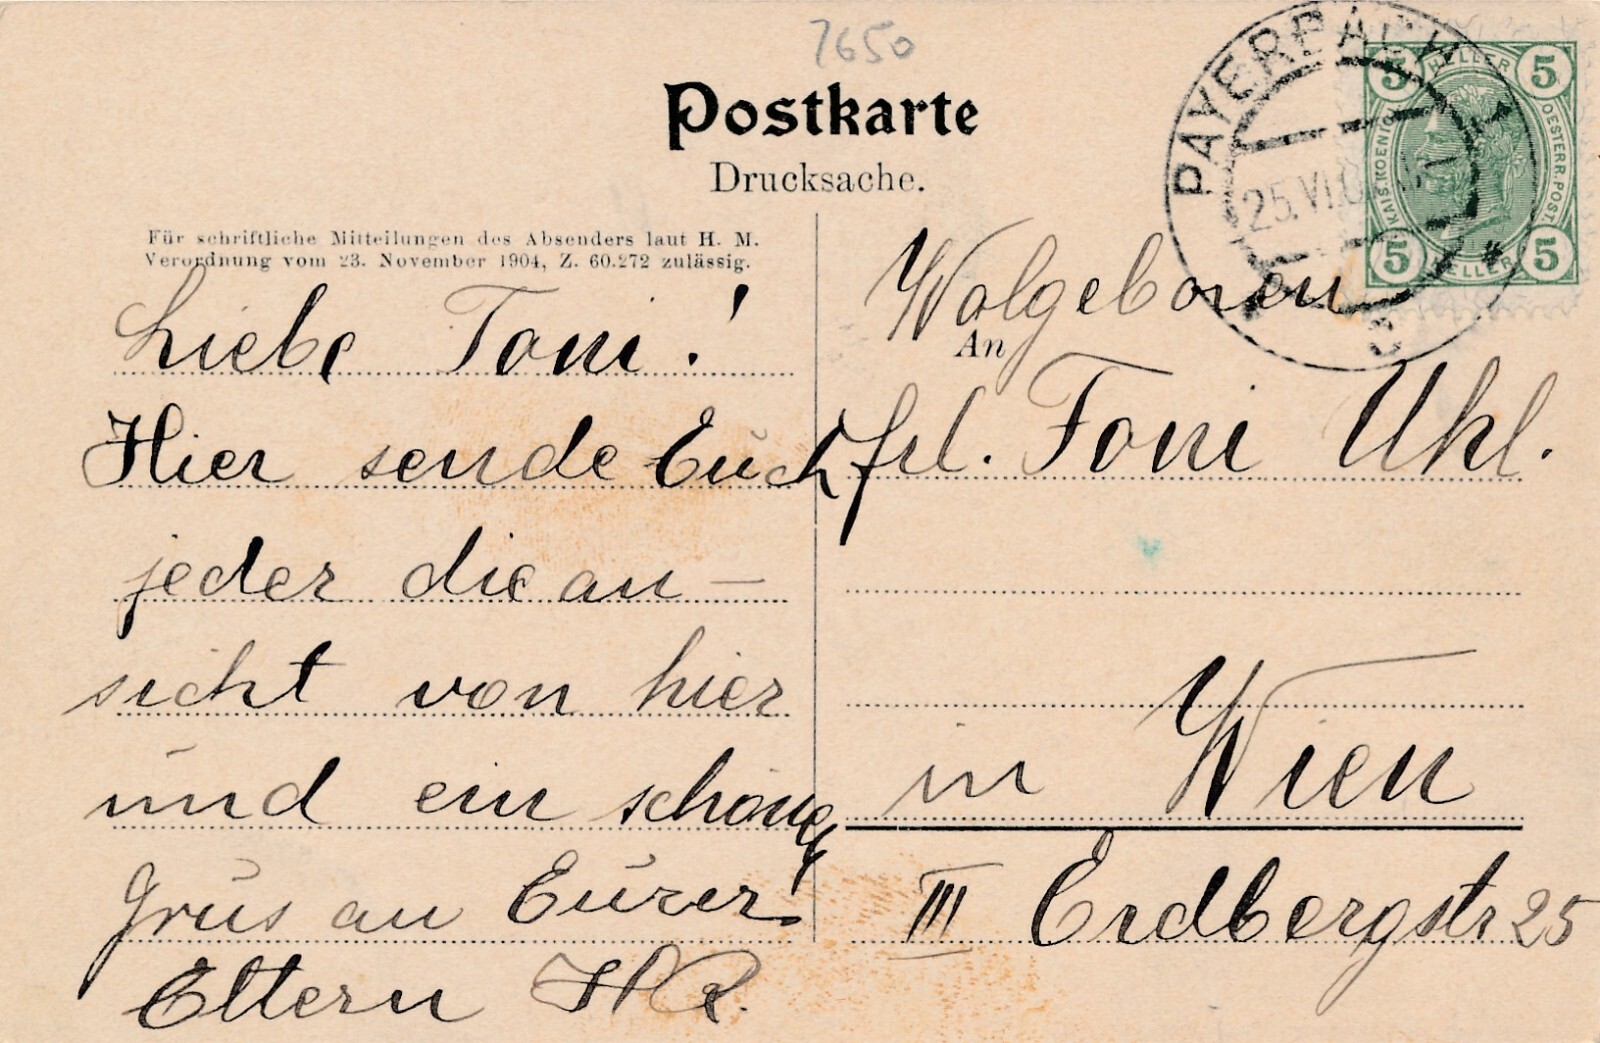 7650
Postkarte
Drucksache.
PAYERBACH
25.VI.0
5 HELLER 5
KAIS.KOENIGL. OESTERR.POST.
5 HELLER 5
Für schriftliche Mitteilungen des Absenders laut H. M.
Verordnung vom 23. November 1904, Z. 60.272 zulässig.
Liebe Toni!
Hier sende Euch
jeder die an—
sicht von hier
und ein schöng
Grus an Eurer!
Eltern HR.
Wolgeboren
An
Frl. Toni Uhl.
in Wien
III Erdbergstr 25